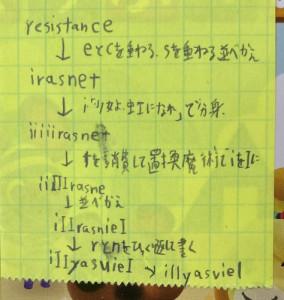 resistance
↓ eとcを重ねる、sを重ねる並べかえ
irasnet
↓ i「少女よ、虹になれ」で分身
iiiiirasnet
↓ tを消費して置換魔術でiをIに
iiIIIrasne
↓ 並べかえ
iIIrasnieI
↓ rとnをひっくり返して書く
iIIyasuieI → illyasviel